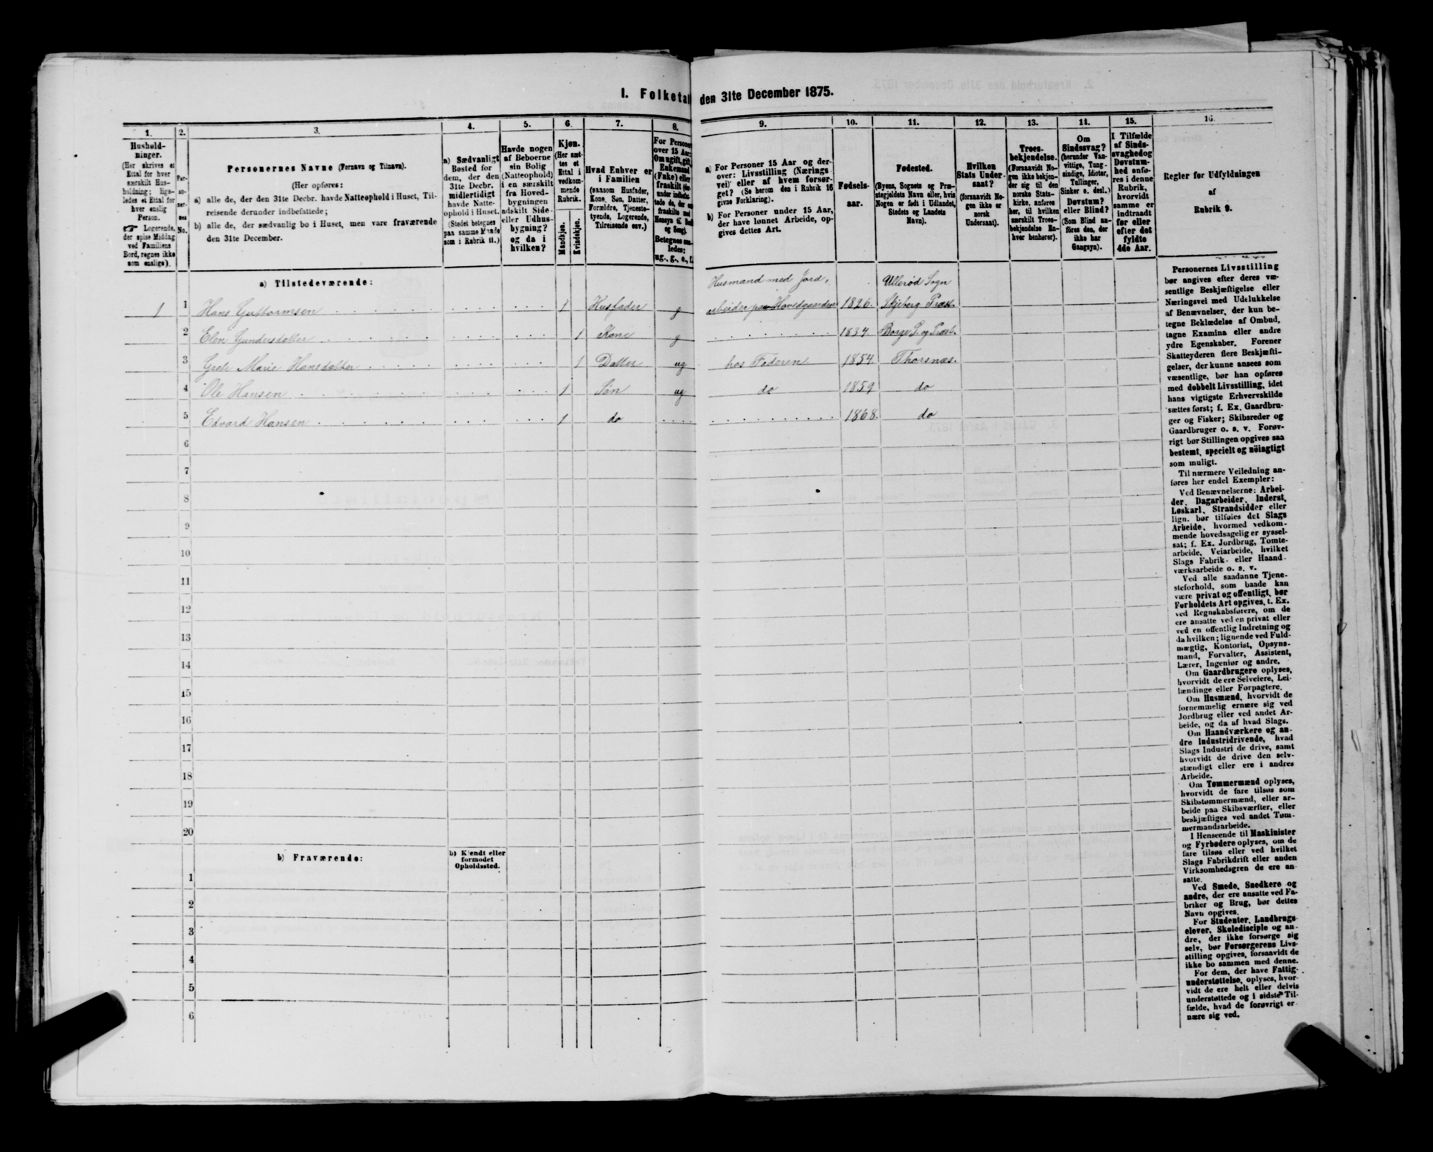 I. Folketal den 31te December 1875.
1. 2. 3. 4. 5. 6. 7. 8. 9. 10. 11. 12. 13. 14. 15. 16.
Hushold-
ninger.
(Her skrives et
Ettal for hver
særskilt Hus-
holdning; lige-
ledes et Ettal for
hver enslig
Person.
☞ Logerende,
der spise Middag
ved Familiens
Bord, regnes ikke
som enslige).
Per-
so-
ner-
nes
No.
Personernes Navne (Fornavn og Tilnavn).
(Her opføres:
a) alle de, der den 31te Decbr. havde Natteophold i Huset, Til-
reisende derunder indbefattede;
b) alle de, der sædvanlig bo i Huset, men vare fraværende
den 31te December.
a) Sædvanligt
Bosted for
dem, der den
31te Decbr.
midlertidigt
havde Natte-
ophold i Huset.
(Stedet betegnes
paa samme Maade
som i Rubrik 11.)
Havde nogen
af Beboerne
sin Bolig
(Natteophold)
i en særskilt
fra Hoved-
bygningen
adskilt Side-
eller Udhus-
bygning?
og da i
hvilken?
Kjøn.
(Her sæt-
tes et
Ettal i
vedkom-
mende
Rubrik.
Mandkjøn.
Kvindekjøn.
Hvad Enhver er
i Familien
(saasom Husfader,
Kone, Søn, Datter,
Forældre, Tjeneste-
tyende, Logerende,
Tilreisende osv.)
For Personer
over 15 Aar:
Om ugift, gift,
Enkemand
(Enke) eller
fraskilt
Betegnes saa-
ledes:
ug., g., e., f.
a) For Personer 15 Aar og der-
over: Livsstilling (Nærings
vei) eller af hvem forsør-
get? (Se herom den i Rubrik 16
givne Forklaring).
b) For Personer under 15 Aar,
der have lønnet Arbeide, op-
gives dettes Art.
Fødsels-
aar.
Fødested.
(Byens, Sognets og Præ-
stegjeldets Navn eller, hvis
Nogen er født i Udlandet,
Stedets og Landets
Navn).
Hvilken
Stats Under-
saat?
(forsaavidt No-
gen ikke er
norsk
Undersaat).
Troes-
bekjendelse.
(Forsaavidt No-
gen ikke bekjen-
der sig til den
norske Stats-
kirke, anføres
her, til hvilken
særskilt Troes-
bekjendelse En-
hver henhører).
Om
Sindssvag?
(herunder Van-
vittige, Tung-
sindige, Idioter,
Tullinger,
Sinker o. desl.)
Døvstum?
eller Blind?
(Som Blind an-
føres den, der
ikke har
Gangsyn).
I Tilfælde
af Sinds-
svaghed og
Døvstum-
hed anfø-
res i denne
Rubrik,
hvorvidt
samme er
indtraadt
før eller
efter det
fyldte
4de Aar.
Regler for Udfyldningen
af
Rubrik 9.
a) Tilstedeværende:
Husmand med Jord, Ullerød Sogn
1 1 Hans Guttormsen 1 Husfader g arbeider paa Hovedgaarden 1826. Skjeberg Præst.
2 Elen Gundersdatter 1 Kone g 1834. Borge S. og Præst.
3 Grete Marie Hansdatter 1 Datter ug hos Faderen 1854. Thorsnæs.
4 Ole Hansen 1 Søn ug do 1859 do
5 Edvard Hansen 1 do 1868. do
6
7
8
9
10
11
12
13
14
15
16
17
18
19
20
b) Fraværende:
b) Kjendt eller
formodet
Opholdssted.
1
2
3
4
5
6
Personernes Livsstilling
bør angives efter deres væ-
sentlige Beskjæftigelse eller
Næringsvei med Udelukkelse
af Benævnelser, der kun be-
tegne Beklædelse af Ombud,
tagne Examina eller andre
ydre Egenskaber. Forener
Skatteyderen flere Beskjæfti-
gelser, der kunne ansees som
væsentlige, bør han opføres
med dobbelt Livsstilling, idet
hans vigtigste Erhvervskilde
sættes først; f. Ex. Gaardbru-
ger og Fisker; Skibsreder og
Gaardbruger o. s. v. Forøv-
rigt bør Stillingen opgives saa
bestemt, specielt og nøiagtigt
som muligt.
Til nærmere Veiledning an-
føres her endel Exempler:
Ved Benævnelserne: Arbei-
der, Dagarbeider, Inderst,
Løskarl, Strandsidder eller
lign. bør tilføies det Slags
Arbeide, hvormed vedkom-
mende hovedsagelig er syssel-
sat; f. Ex. Jordbrug, Tomte-
arbeide, Veiarbeide, hvilket
Slags Fabrik- eller Haand-
værksarbeide o. s. v.
Ved alle saadanne Tjene-
steforhold, som baade kan
være privat og offentligt, bør
Forholdets Art opgives, t. Ex.
ved Regnskabsførere, om de
ere ansatte ved en privat eller
ved en offentlig Indretning og
da hvilken; lignende ved Fuld-
mægtig, Kontorist, Opsyns-
mand, Forvalter, Assistent,
Lærer, Ingeniør og andre.
Om Gaardbrugere oplyses,
hvorvidt de ere Selveiere, Lei-
lændinge eller Forpagtere.
Om Husmænd, hvorvidt de
fornemmelig ernære sig ved
Jordbrug eller ved andet Ar-
beide, og da af hvad Slags.
Om Haandværkere og an-
dre Industridrivende, hvad
Slags Industri de drive, samt
hvorvidt de drive den selv-
stændigt eller ere i andres
Arbeide.
Om Tømmermænd oplyses,
hvorvidt de fare tilsøs som
Skibstømmermænd, eller ar-
beide paa Skibsværfter, eller
beskjæftiges ved andet Tøm-
mermandsarbeide.
I Henseende til Maskinister
og Fyrbødere oplyses, om de
fare tilsøs eller ved hvilket
Slags Fabrikdrift eller anden
Virksomhedsgren de ere an-
satte.
Ved Smede, Snedkere og
andre, der ere ansatte ved Fa-
briker og Brug, bør dettes
Navn opgives.
For Studenter, Landbrugs-
elever, Skoledisciple og an-
dre, der ikke forsørge sig
selv, bør Forsørgerens Livs-
stilling opgives, forsaavidt de
ikke bo sammen med denne.
For dem, der have Fattig-
understøttelse, oplyses, hvor-
vidt de ere helt eller delvis
understøttede og i sidste Til-
fælde, hvad de forøvrigt er-
nære sig ved.